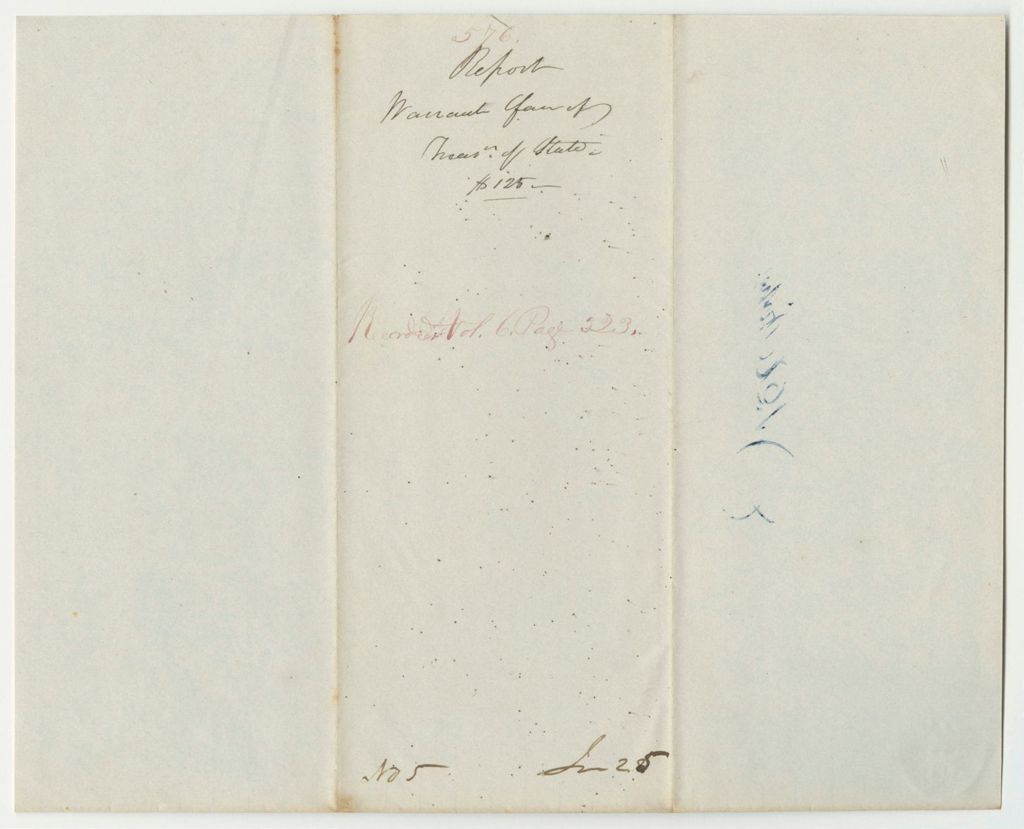 576.
Report
Warrant favor of
Treasr. of State
$125.—
Recorded Vol. 6. Page 323.
No 5
25